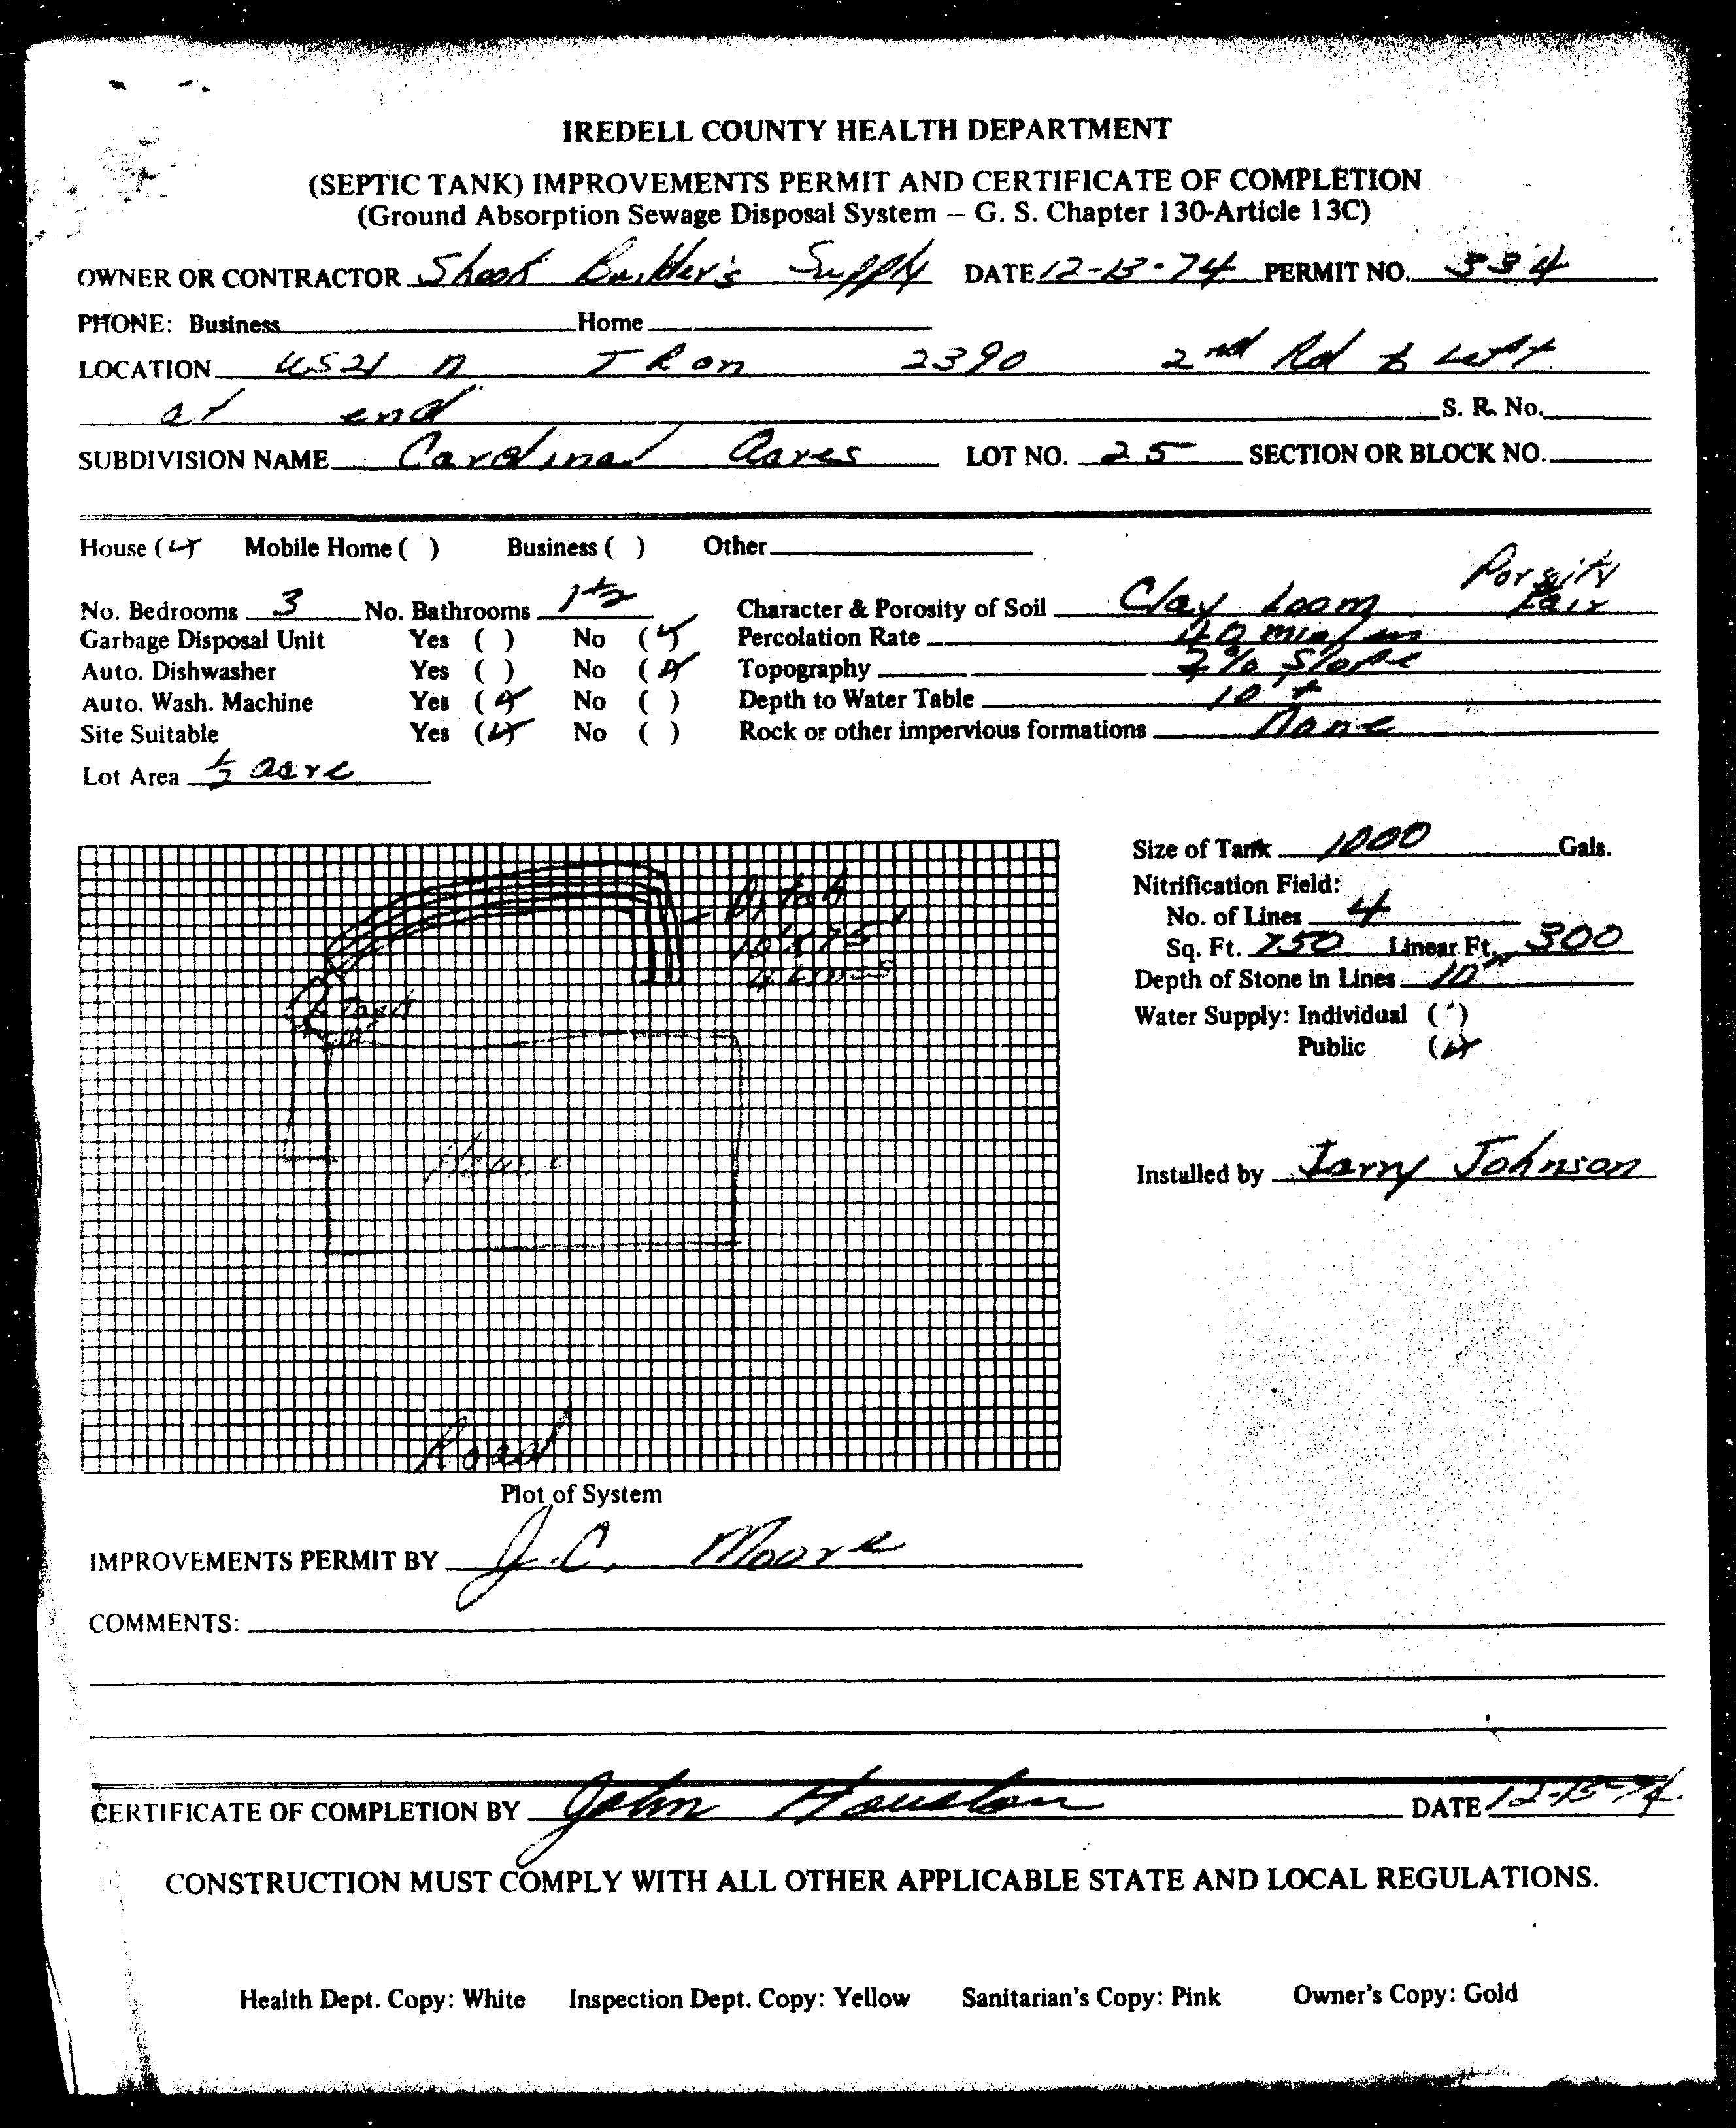 IREDELL COUNTY HEALTH DEPARTMENT
(SEPTIC TANK) IMPROVEMENTS PERMIT AND CERTIFICATE OF COMPLETION
(Ground Absorption Sewage Disposal System – G. S. Chapter 130-Article 13C)
OWNER OR CONTRACTOR Builder's Supply DATE 12-13-74 PERMIT NO. 334
PHONE: Business Home
LOCATION US21 n T R on 2390 2nd Rd to Left
at end S. R. No.
SUBDIVISION NAME Cardinal Acres LOT NO. 25 SECTION OR BLOCK NO.
House ( ) Mobile Home ( ) Business ( ) Other
No. Bedrooms 3 No. Bathrooms 1 1/2 Character & Porosity of Soil Clay Loom Porsity Fair
Garbage Disposal Unit Yes ( ) No ( ) Percolation Rate min/in
Auto. Dishwasher Yes ( ) No ( ) Topography 2% Slope
Auto. Wash. Machine Yes ( ) No ( ) Depth to Water Table 10'+
Site Suitable Yes ( ) No ( ) Rock or other impervious formations None
Lot Area 1/2 acre
Size of Tank 1000 Gals.
Nitrification Field:
No. of Lines 4
Sq. Ft. 750 Linear Ft. 300
Depth of Stone in Lines 10"
Water Supply: Individual ( )
Public ( )
Ditch
75'
4 Lines
Tank
House
Installed by Larry Johnson
Road
Plot of System
IMPROVEMENTS PERMIT BY J.C. Moore
COMMENTS:
CERTIFICATE OF COMPLETION BY John Houston DATE 12-13-74
CONSTRUCTION MUST COMPLY WITH ALL OTHER APPLICABLE STATE AND LOCAL REGULATIONS.
Health Dept. Copy: White Inspection Dept. Copy: Yellow Sanitarian's Copy: Pink Owner's Copy: Gold